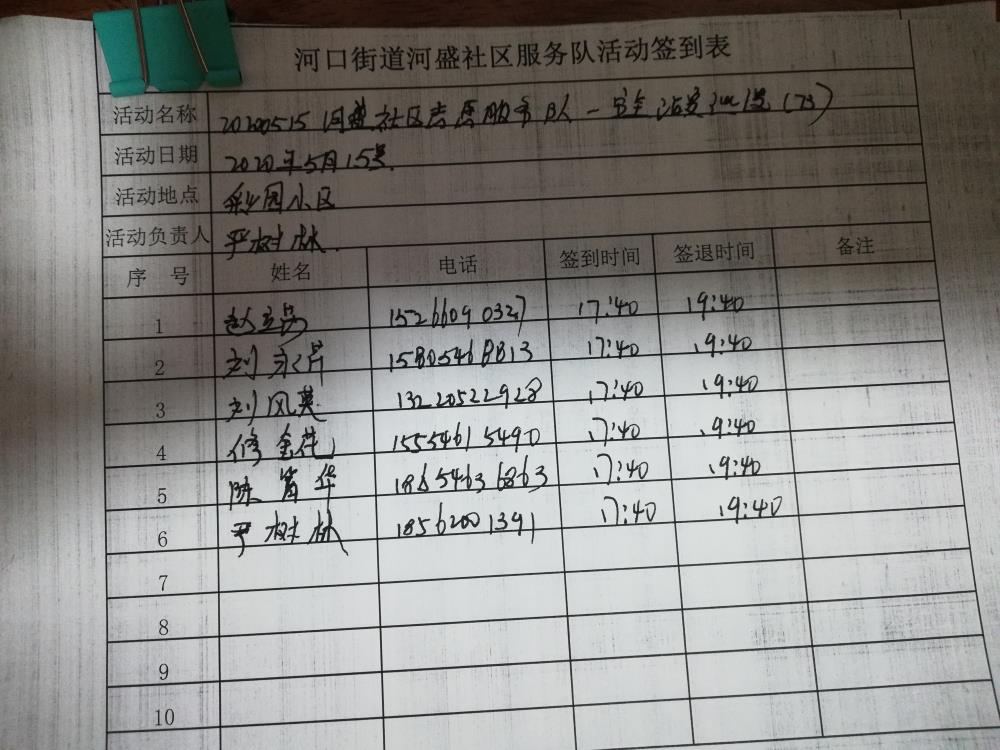 河口街道河盛社区服务队活动签到表
活动名称 20200515河盛社区志愿服务队一安全 (73)
活动日期 2020年5月15号
活动地点 彩园小区
活动负责人 严树林
序号 姓名 电话 签到时间 签退时间 备注
1 15266090327 17:40 19:40
2 刘 15805468813 17:40 19:40
3 刘风英 13220522928 17:40 19:40
4 修金花 15554615490 17:40 19:40
5 陈 华 18654636863 17:40 19:40
6 严树林 18562001391 17:40 19:40
7
8
9
10